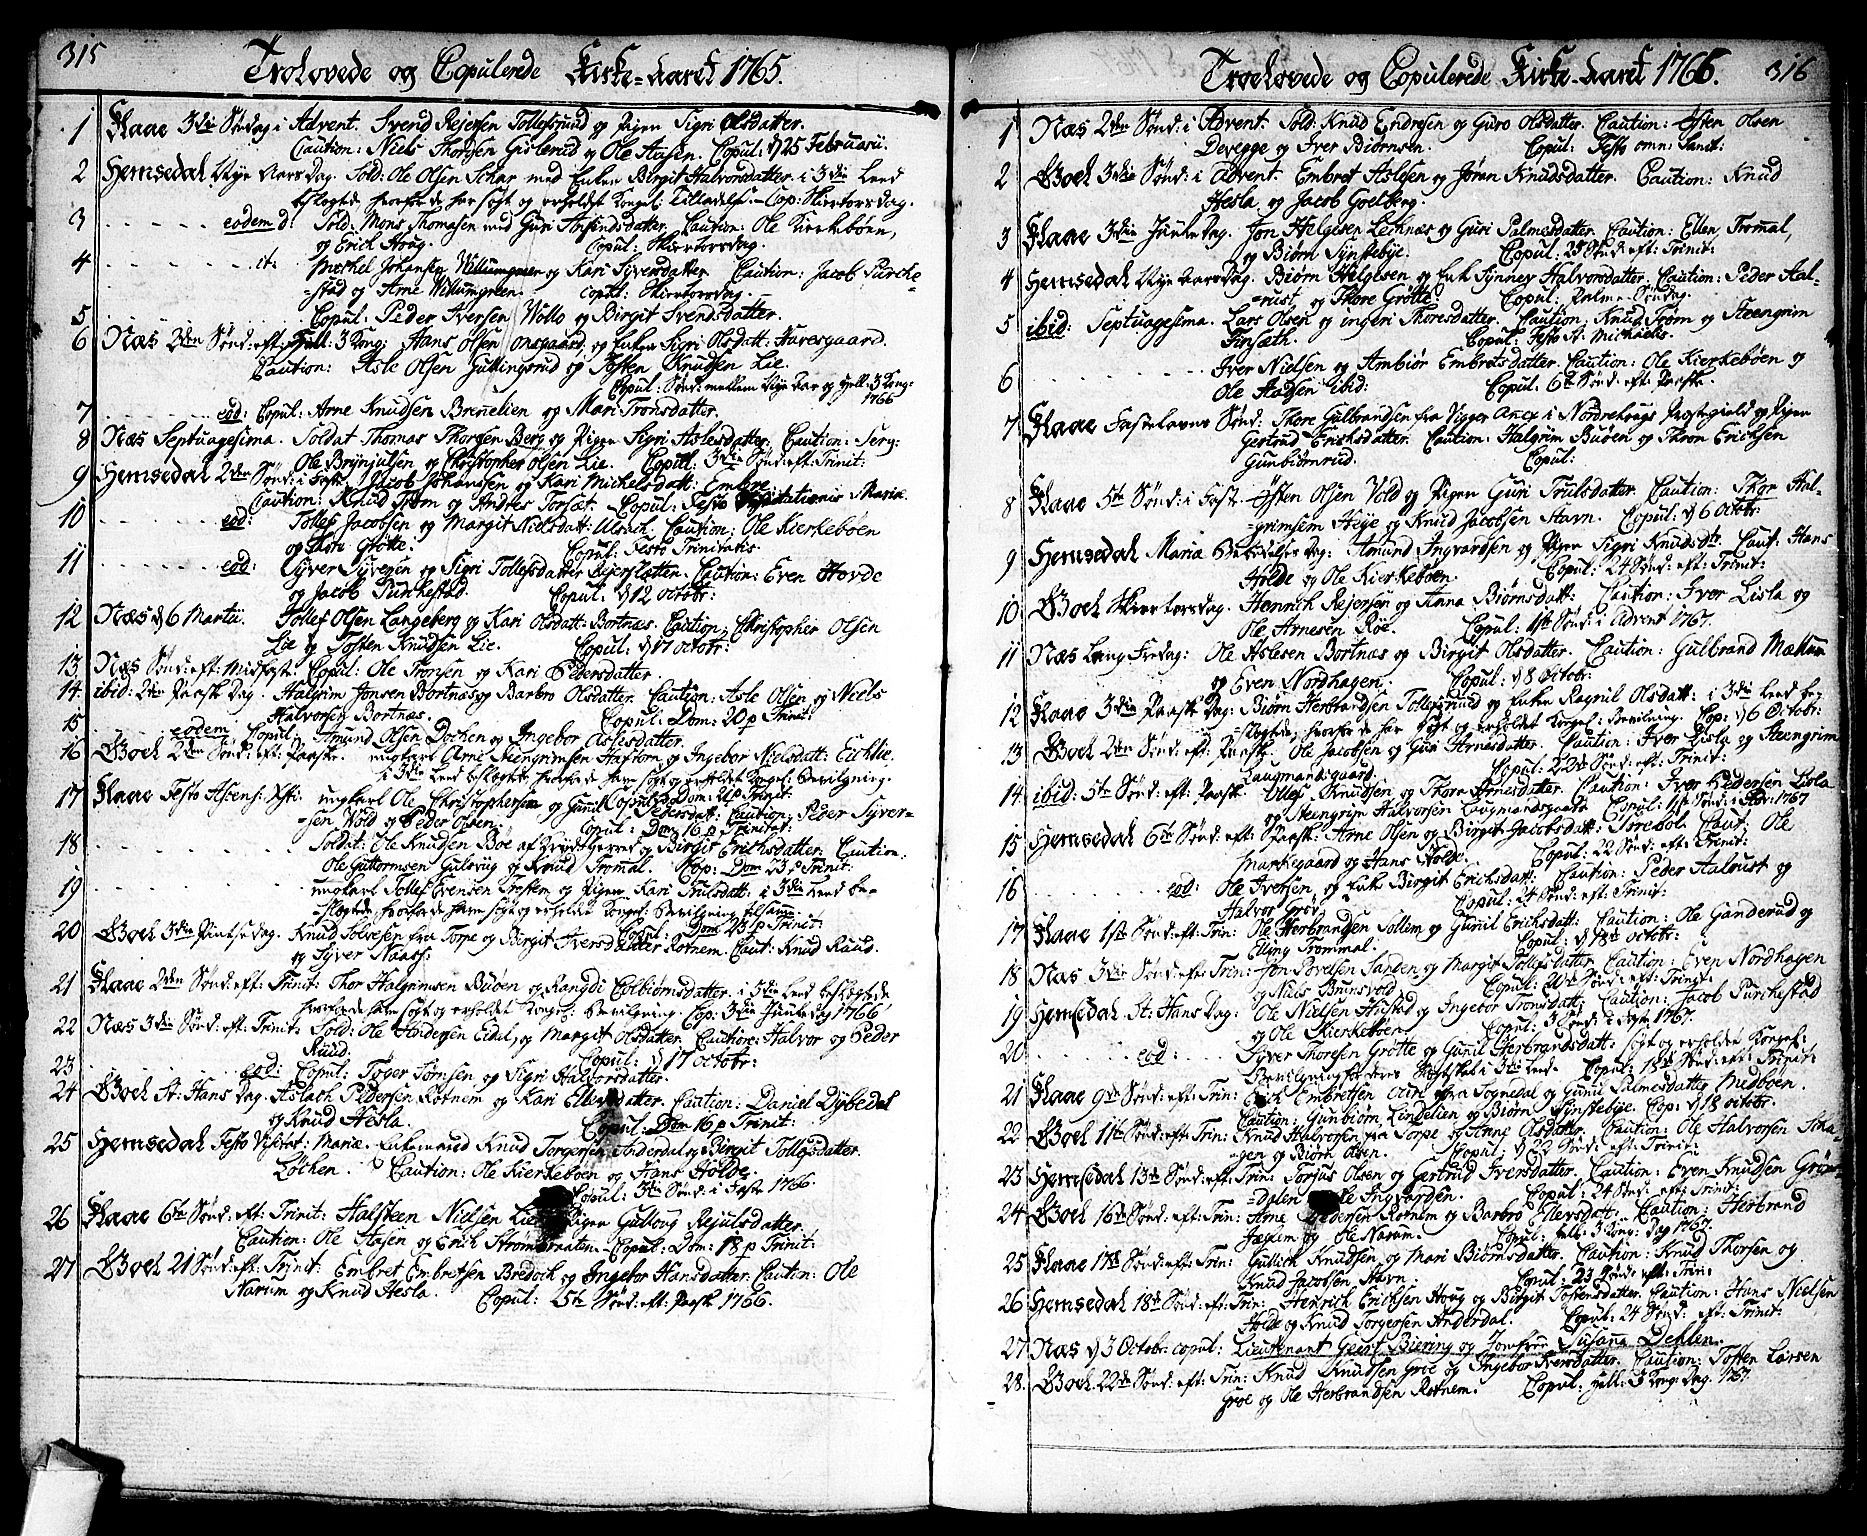 315
Trolovede og Copulerede Kirke-Aaret 1765.
1 Flaae 3die Søndag i Advent. Svend Rejersen Tollefsruud og Pigen Sigri Olsdatter.
Caution: Niels Thorsen Gislerud og Ole Aasen. Copul: d 25 Februarii.
2 Hemsedal Nye Aars Dag. Sold: Ole Olsen med Enken Birgit Halvorsdatter i 3die Leed
beslægtede hvorfore har søgt og erholdet Kongel: Tilladelse. Cop: Skiertorsdag.
3 eodem d: Sold: Mons Thomasen med Guri Amundsdatter. Caution: Ole Kierkebøen,
og Erich Houg. Copul: Skiertorsdag.
4 it: Mechel Johansen Willumgreen og Kari Syversdatter Caution: Jacob Purche-
-stad og Arne Willumgreen. copul: Skiertorsdag.
5 Copul: Peder Iversen Wollo og Birgit Svendsdatter.
6 Næs 2den Sønd: eft: Hell: 3 Kong: Hans Olsen Onsgaard og Enken Sigri Olsdatt: Haresgaard.
Caution: Asle Olsen Gullingsrud og Tosten Knudsen Lie.
Copul: Sønd: mellem Nye Aar og Hell: 3 Kong:
1766
7 eod: Copul: Arne Knudsen Brenelien og Mari Tronsdatter.
8 Næs Septuagesima. Soldat Thomas Thorsen Berg og Pigen Sigri Aslesdatter. Caution: Serg:
Ole Brynjulsen og Christopher Olsen Lie. Copul: 3die Sønd: eft: Trinit:
9 Hemsedal 2den Sønd: i Faste. Jacob Johansen og Kari Michelsdatt: Embre.
Caution: Knud Trøm og Andres Torsæt. Copul: Festo Visitationis Mariæ.
10 eod: Tollef Jacobsen og Margit Nielsdatt: Ulsach. Caution: Ole Kierkebøen
og Thore Grøtte. Copul: Festo Trinitatis.
11 eod: Syver Syversen og Sigri Tollefsdatter Caution: Even Hovde
og Jacob Purchestad. Copul: d 12 octobr:
12 Næs d 6 Martii. Tollef Olsen Langeberg og Kari Olsdatt: Bortnæs. Caution: Christopher Olsen
Lie og Tosten Knudsen Lie. Copul: d 17 octobr:
13. Næs Sønd: eft: Midfast. Copul: Ole Tronsen og Kari Pedersdatter.
14. ibid: 2den Paaske Dag. Halgrim Jonsen Bortnæs og Barbro Olsdatter. Caution: Asle Olsen og Niels
Halvorsen Bortnæs. Copul: Dom: 20 p Trinit:
15 eodem Copul: Amund Olsen Dochen og Ingebor Aslesdatter.
16 Goel 2den Sønd: eft: Paaske. ungkarl Arne Steengrimsen Haftorn og Ingebor Nielsdatt: Eichlie.
i 3die Leed beslægtede hvorfore have søgt og erholdet Kongel: Bevilgning.
Copul: Dom: 21 p Trinit:
17 Flaae Festo Ascens: Xsti: ungkarl Ole Christophersen og Gunil Pedersdatt: Caution: Peder Syver-
-sen Vold og Peder Olsen. Copul: Dom 16 p Trinitat:
18 Soldat: Ole Knudsen Bøe af og Birgit Erichsdatter. Caution:
Ole Guttormsen Gulsvig og Knud Trommal. Cop: Dom 23 p Trinit:
19 ungkarl Tollef Evensen og Pigen Kari Trulsdatt: i 3die Leed be-
-slægtede, hvorfore have søgt og erholdet Konget: Bevilgning
Copul: Dom 23 p Trinit:
20 Goel 3die Pintsedag. Knud Solvesen fra Torpe og Birgit Iversdatter Rotnem. Caut: Knud Raud.
og Syver Naars:
21 Flaae 2den Sønd: eft: Trinit: Thor Halgrimsen Buøen og Rangdi Colbiørnsdatter i 3die Leed beslægtede
hvorfore have søgt og erholdet Kongel: Bevilgning. Cop: 3die Juule Dag 1766
22 Næs 3die Sønd: eft: Trinit: Sold: Ole Andersen Eidal, og Margit Olsdatter. Caution: Halvor og Peder
Ruud. Copul: d 17 octobr:
23 eod: Copul: Tøger Tomsen og Sigri Halvorsdatter.
24 Goel St: Hans Dag. Aslach Pedersen Rotnem og Kari Ellevsdatter. Caution: Daniel Dybedal
og Knud Hesla. Copul: Dom 16 p Trinit:
25 Hemsedal Festo Visitat: Mariæ. Enkemand Knud Torgersen Anderdal og Birgit Tollefsdatter
Løchen. Caution: Ole Kierkebøen og Hans Holde.
Copul: 3die Sønd: i Faste 1766.
26 Flaae 6te Sønd: eft: Trinit: Halsteen Nielsen Lie og Pigen Gullaug Rejulsdatter.
Caution: Ole Aasen og Erich Strømbraaten. Copul: Dom: 18 p Trinit:
27 Goel 21 Sønd: eft: Trinit: Embret Embretsen Bredoch og Ingebor Hansdatter. Caution: Ole
Narum og Knud Hesla. Copul: 25te Sønd: eft: Paask 1766.
Troelovede og Copulerede Kirke-Aaret 1766.
316
1 Næs 2den Sønd: i Advent. Sold: Knud Endresen og Guro Olsdatter. Caution: Østen Olsen
Devegge og Iver Biørnsen. Copul: Festo omn: Sanct:
2 Goel 3die Sønd: i Advent. Embret Aslesen og Jøran Knudsdatter. Caution: Knud
Hesla og Jacob Goelberg.
3 Flaae 3die Juule Dag. Jon Helgesen Lechnæs og Guri Palmesdatter. Caution: Ellen Trommal,
og Biørn Synstebye. Copul: 25 Sønd: eft: Trinit:
4 Hemsedal Nye Aars Dag. Biørn Helgesen og Enk: Synnev Halvorsdatter. Caution: Peder Aal-
-rust og Thore Grøtte. Copul: Palme Søndag.
5 ibid: Septuagesima. Lars Olsen og ingeri Thoresdatter. Caution: Knud Trøm og Steengrim
Finsæth. Copul: Festo St: Michaelis.
6 Iver Nielsen og Ambiør Embretsdatter. Caution: Ole Kierkebøen og
Ole Aadsen ibid: Copul: 6te Sønd: eft: Paaske.
7 Flaae Fastelavns Sønd: Thore Gulbrandsen fra Viger Anex i Nordrehougs Præstegield og Pigen
Gertrud Erichsdatter. Caution: Halgrim Buøen og Thron Erichsen
Gunbiørnrud. Copul:
8 Flaae 5te Sønd: i Fast Østen Olsen Vold og Pigen Guri Trulsdatter. Caution: Thor Hal-
-grimsen Heije og Knud Jacobsen Stavn. Copul: d 6 Octobr:
9 Hemsedal Mariæ Bebudelses Dag: Amund Ingvardsen og Pigen Sigri Knudsdtr. Caut: Hans
Holde og Ole Kierkebøen. Copul: 24 Sønd: eft: Trinit:
10 Goel Skiertorsdag. Henrich Rejersen og Anna Biørnsdatt: Caution: Iver Lisla og
Ole Arnesen Røe. Copul: 1ste Sønd: i Advent 1767.
11 Næs Lang Fredag: Ole Aslesen Bortnæs og Birgit Olsdatter. Caution: Gulbrand Mækum
og Even Nordhagen. Copul: d 8 Octobr:
12 Flaae 3die Paaske Dag: Biørn Herbrandsen Tollefsrud og Enke Ragnil Olsdatt: i 3die Leed be-
-slægtede, hvorfore de har søgt og erholdet Kongel: Bevilgning. Cop: d 6 Octobr:
13 Goel 2den Sønd: eft: Paask: Ole Jacobsen og Guri Arnesdatter. Caution: Iver Lisla og Steengrim
Laugmandsgaard. Copul: 22de Sønd: eft: Trinit:
14 ibid: 5te Sønd: eft: Paask: Ollef Knudsen og Thora Arnesdatter. Caution: Iver Pedersen Lisla
og Steengrim Halvorsen Laugmandsgaard. Copul: 1ste Sønd: i 1767
15 Hemsedal 6te Sønd: eft: Paask: Arne Olsen og Birgit Jacobsdatt: Torebøl. Caut: Ole
Markegaard og Hans Holde. Copul: 22 Sønd: eft: Trinit:
16 eod: Ole Iversen og Enke Birgit Erichsdatt: Caution: Peder Aalrust og
Halvor Grøv. Copul: 24 Sønd: eft: Trinit:
17 Flaae 1ste Sønd: eft: Trin: Ole Herbrandsen Sollim og Gunil Erichsdatt: Caution: Ole Ganderud og
Elling Trommal. Copul: d 18de octobr:
18 Næs 3die Sønd: eft: Trin: Jon Povelsen Sanden og Margit Tollefsdatter. Caution: Even Nordhagen
og Niels Brunsvold. Copul: 20de Sønd: eft: Trinit:
19 Hemsedal St: Hans Dag: Ole Nielsen Hustad og Ingebor Tronsdatt: Caution: Jacob Purchestad
og Ole Kierkebøen. Copul: 3 Sønd: i 1767.
20 eod: Syver Thoresen Grøtte og Gunil Herbrandsdatt: søgt og erholdet Kongel:
Bevilgning for deres Slægtskab i 3die Leed. Copul: 18de Sønd: eft: Trinit:
21 Flaae 9de Sønd: eft: Trin: Erich Embretsen fra Sognedal og Gunil Palmesdatter Midbøen.
Caution: Gunbiørn Lindelien og Biørn Synstebye. Cop: d 18 octobr:
22 Goel 11te Sønd: eft: Trin: Knud Halvorsen fra Torpe og Anne Olsdatter. Caution: Ole Halvorsen Ska-
-gen og Biørn Olsen. Copul: d 22 Sønd: eft: Trinit:
23 Hemsedal 13de Sønd: eft: Trin: Torjus Olsen og Gertrud Iversdatter. Caution: Even Knudsen Grøn-
-dalen Ole Ingvardsen. Copul: 24 Sønd: eft: Trinit:
24 Goel 16de Sønd: eft: Trin: Arne Pedersen Rotnem og Barbro Ellevsdatt: Caution: Herbrand
Jægim og Ole Narum. Copul: Hell: 3 Kong: Dag 1767.
25 Flaae 17de Sønd: eft: Trin: Gullich Knudsen og Mari Biørnsdatter. Caution: Knud Thorsen og
Knud Jacobsen Stavn. Copul: 23 Sønd: eft: Trin:
26 Hemsedal 18de Sønd: eft: Trin: Henrich Erichsen Houg og Birgit Tostensdatter. Caution: Hans Nielsen
Holde og Knud Torgersen Anderdal. Copul: 24 Sønd: eft: Trinit:
27 Næs d 3 Octobr: copul: Lieutenant Geert Biering og Jomfrue Susann Dehlen.
28. Goel 22de Sønd: eft: Trin: Knud Knudsen Grøe og Ingebor Iversdatter. Caution: Tosten Larsen
Grøe og Ole Herbrandsen Rotnem. Copul: Hell: 3 Kong: Dag 1767.